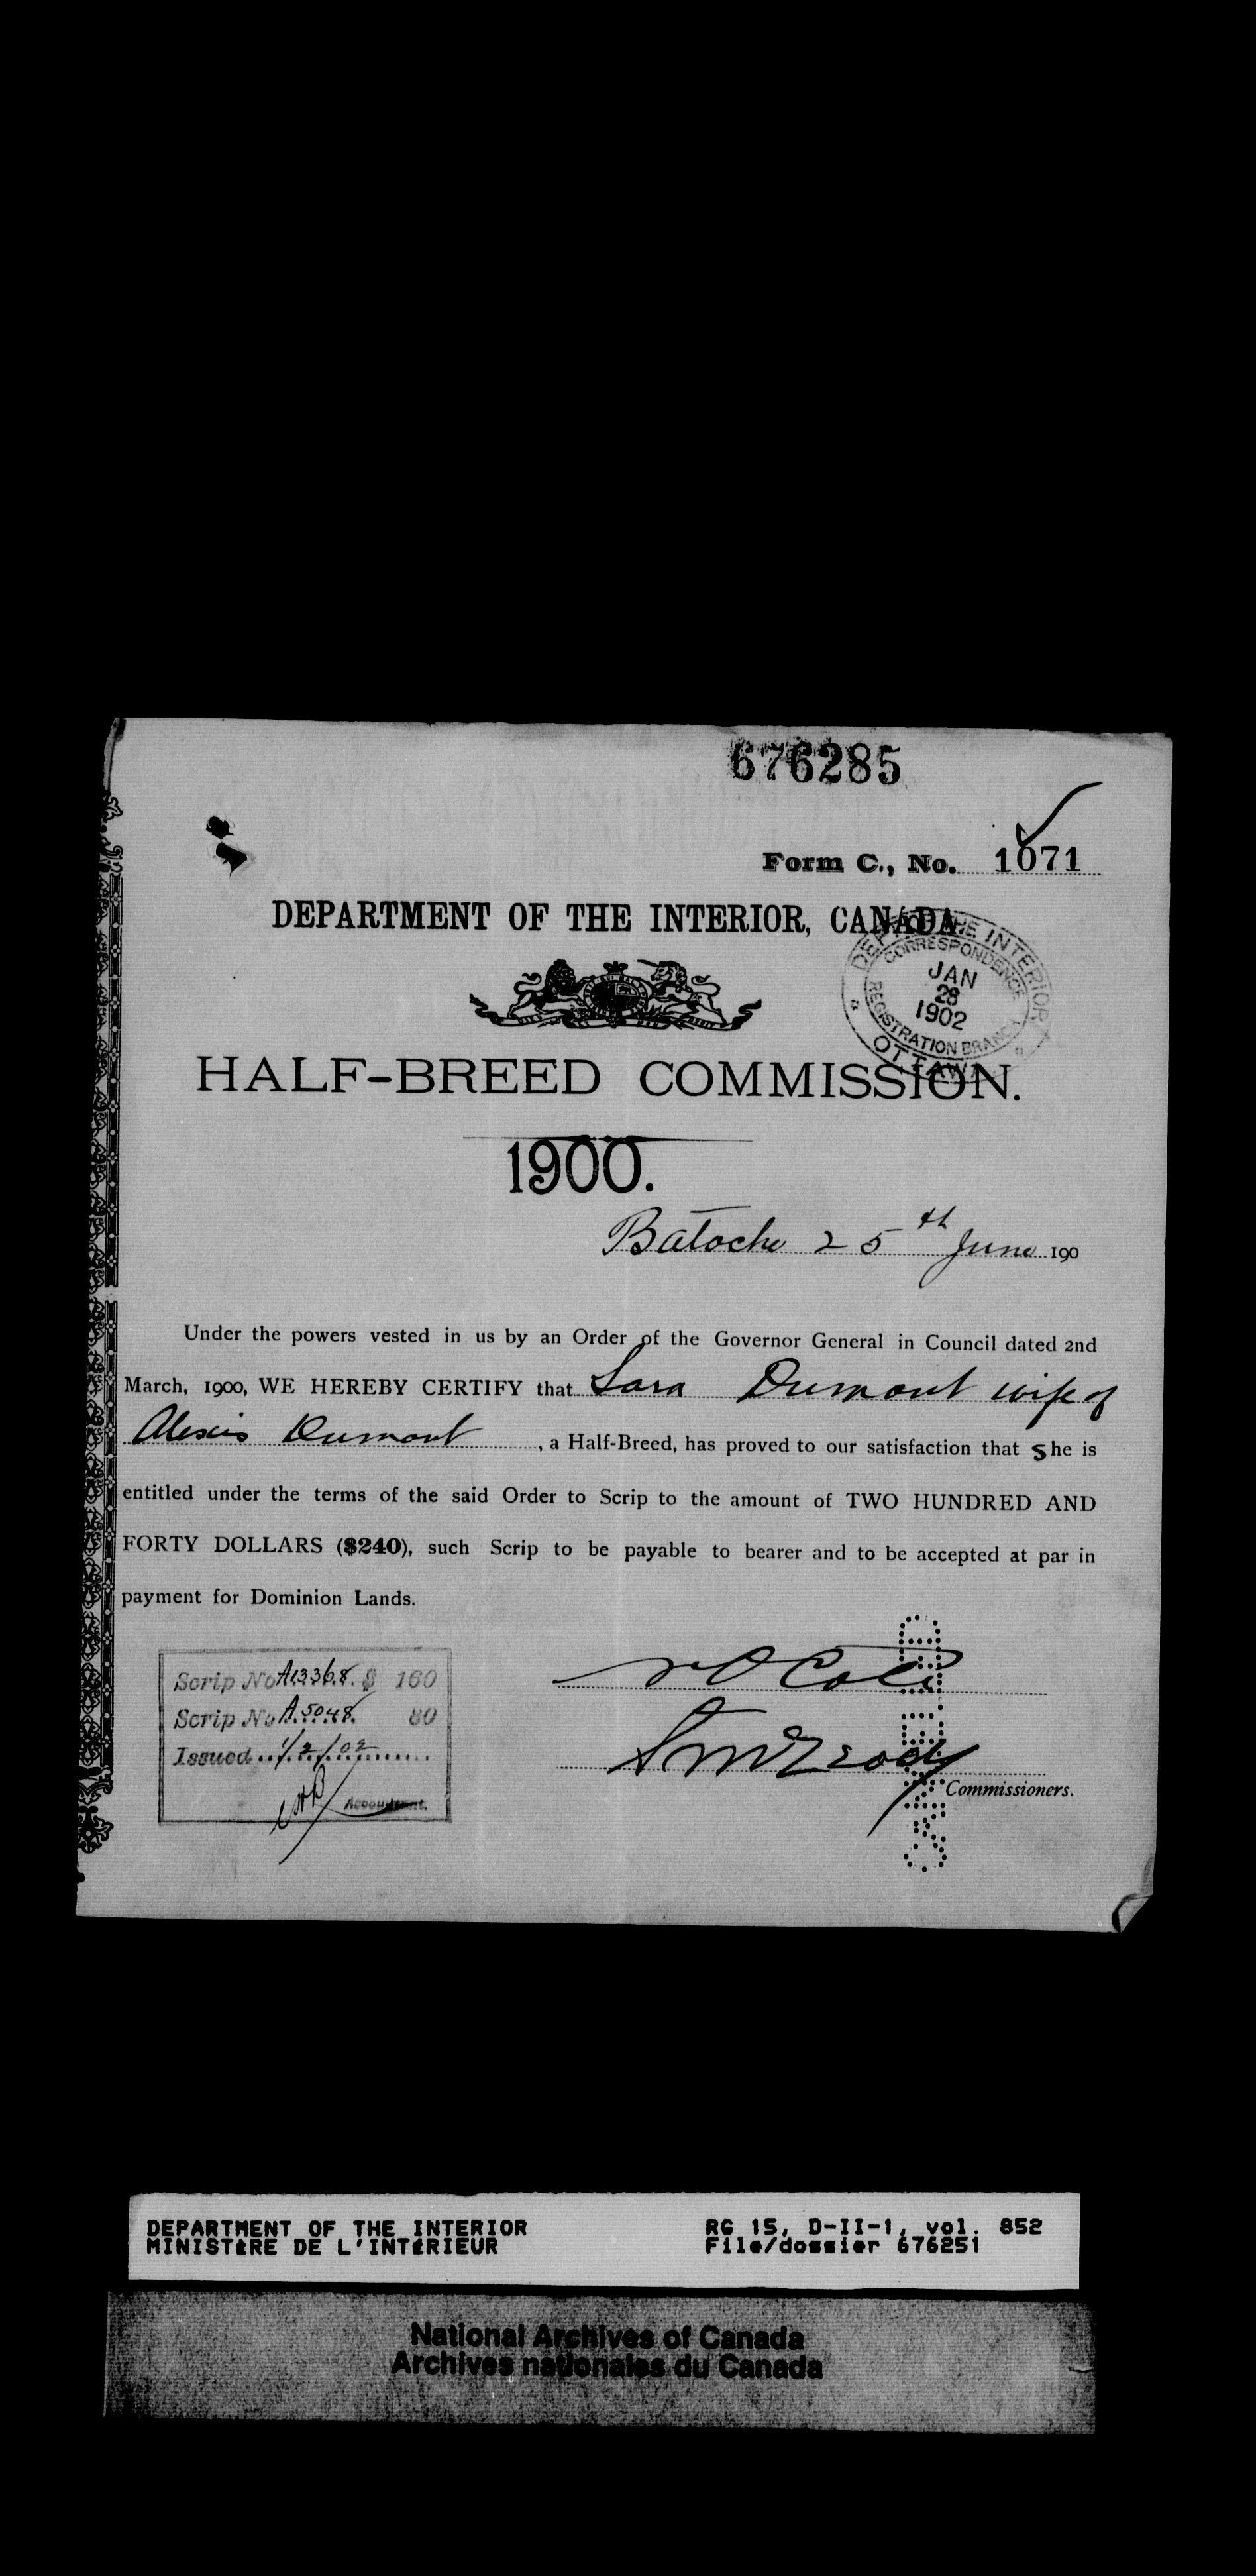 676285
Form C., No. 1071
DEPARTMENT OF THE INTERIOR, CANADA.
DEPT. OF THE INTERIOR
CORRESPONDENCE
JAN
28
1902
REGISTRATION BRANCH
OTTAWA
HALF-BREED COMMISSION.
1900.
Batoche 25th June 190
Under the powers vested in us by an Order of the Governor General in Council dated 2nd
March, 1900, WE HEREBY CERTIFY that Sara Dumont wife of
Alexis Dumont, a Half-Breed, has proved to our satisfaction that She is
entitled under the terms of the said Order to Scrip to the amount of TWO HUNDRED AND
FORTY DOLLARS ($240), such Scrip to be payable to bearer and to be accepted at par in
payment for Dominion Lands.
Scrip No A13368 $ 160
Scrip No A.5048 80
Issued 1/2/02
Accountant.
Commissioners.
DEPARTMENT OF THE INTERIOR
MINISTÈRE DE L'INTÉRIEUR
RG 15, D-II-1, vol. 852
File/dossier 676251
National Archives of Canada
Archives nationales du Canada